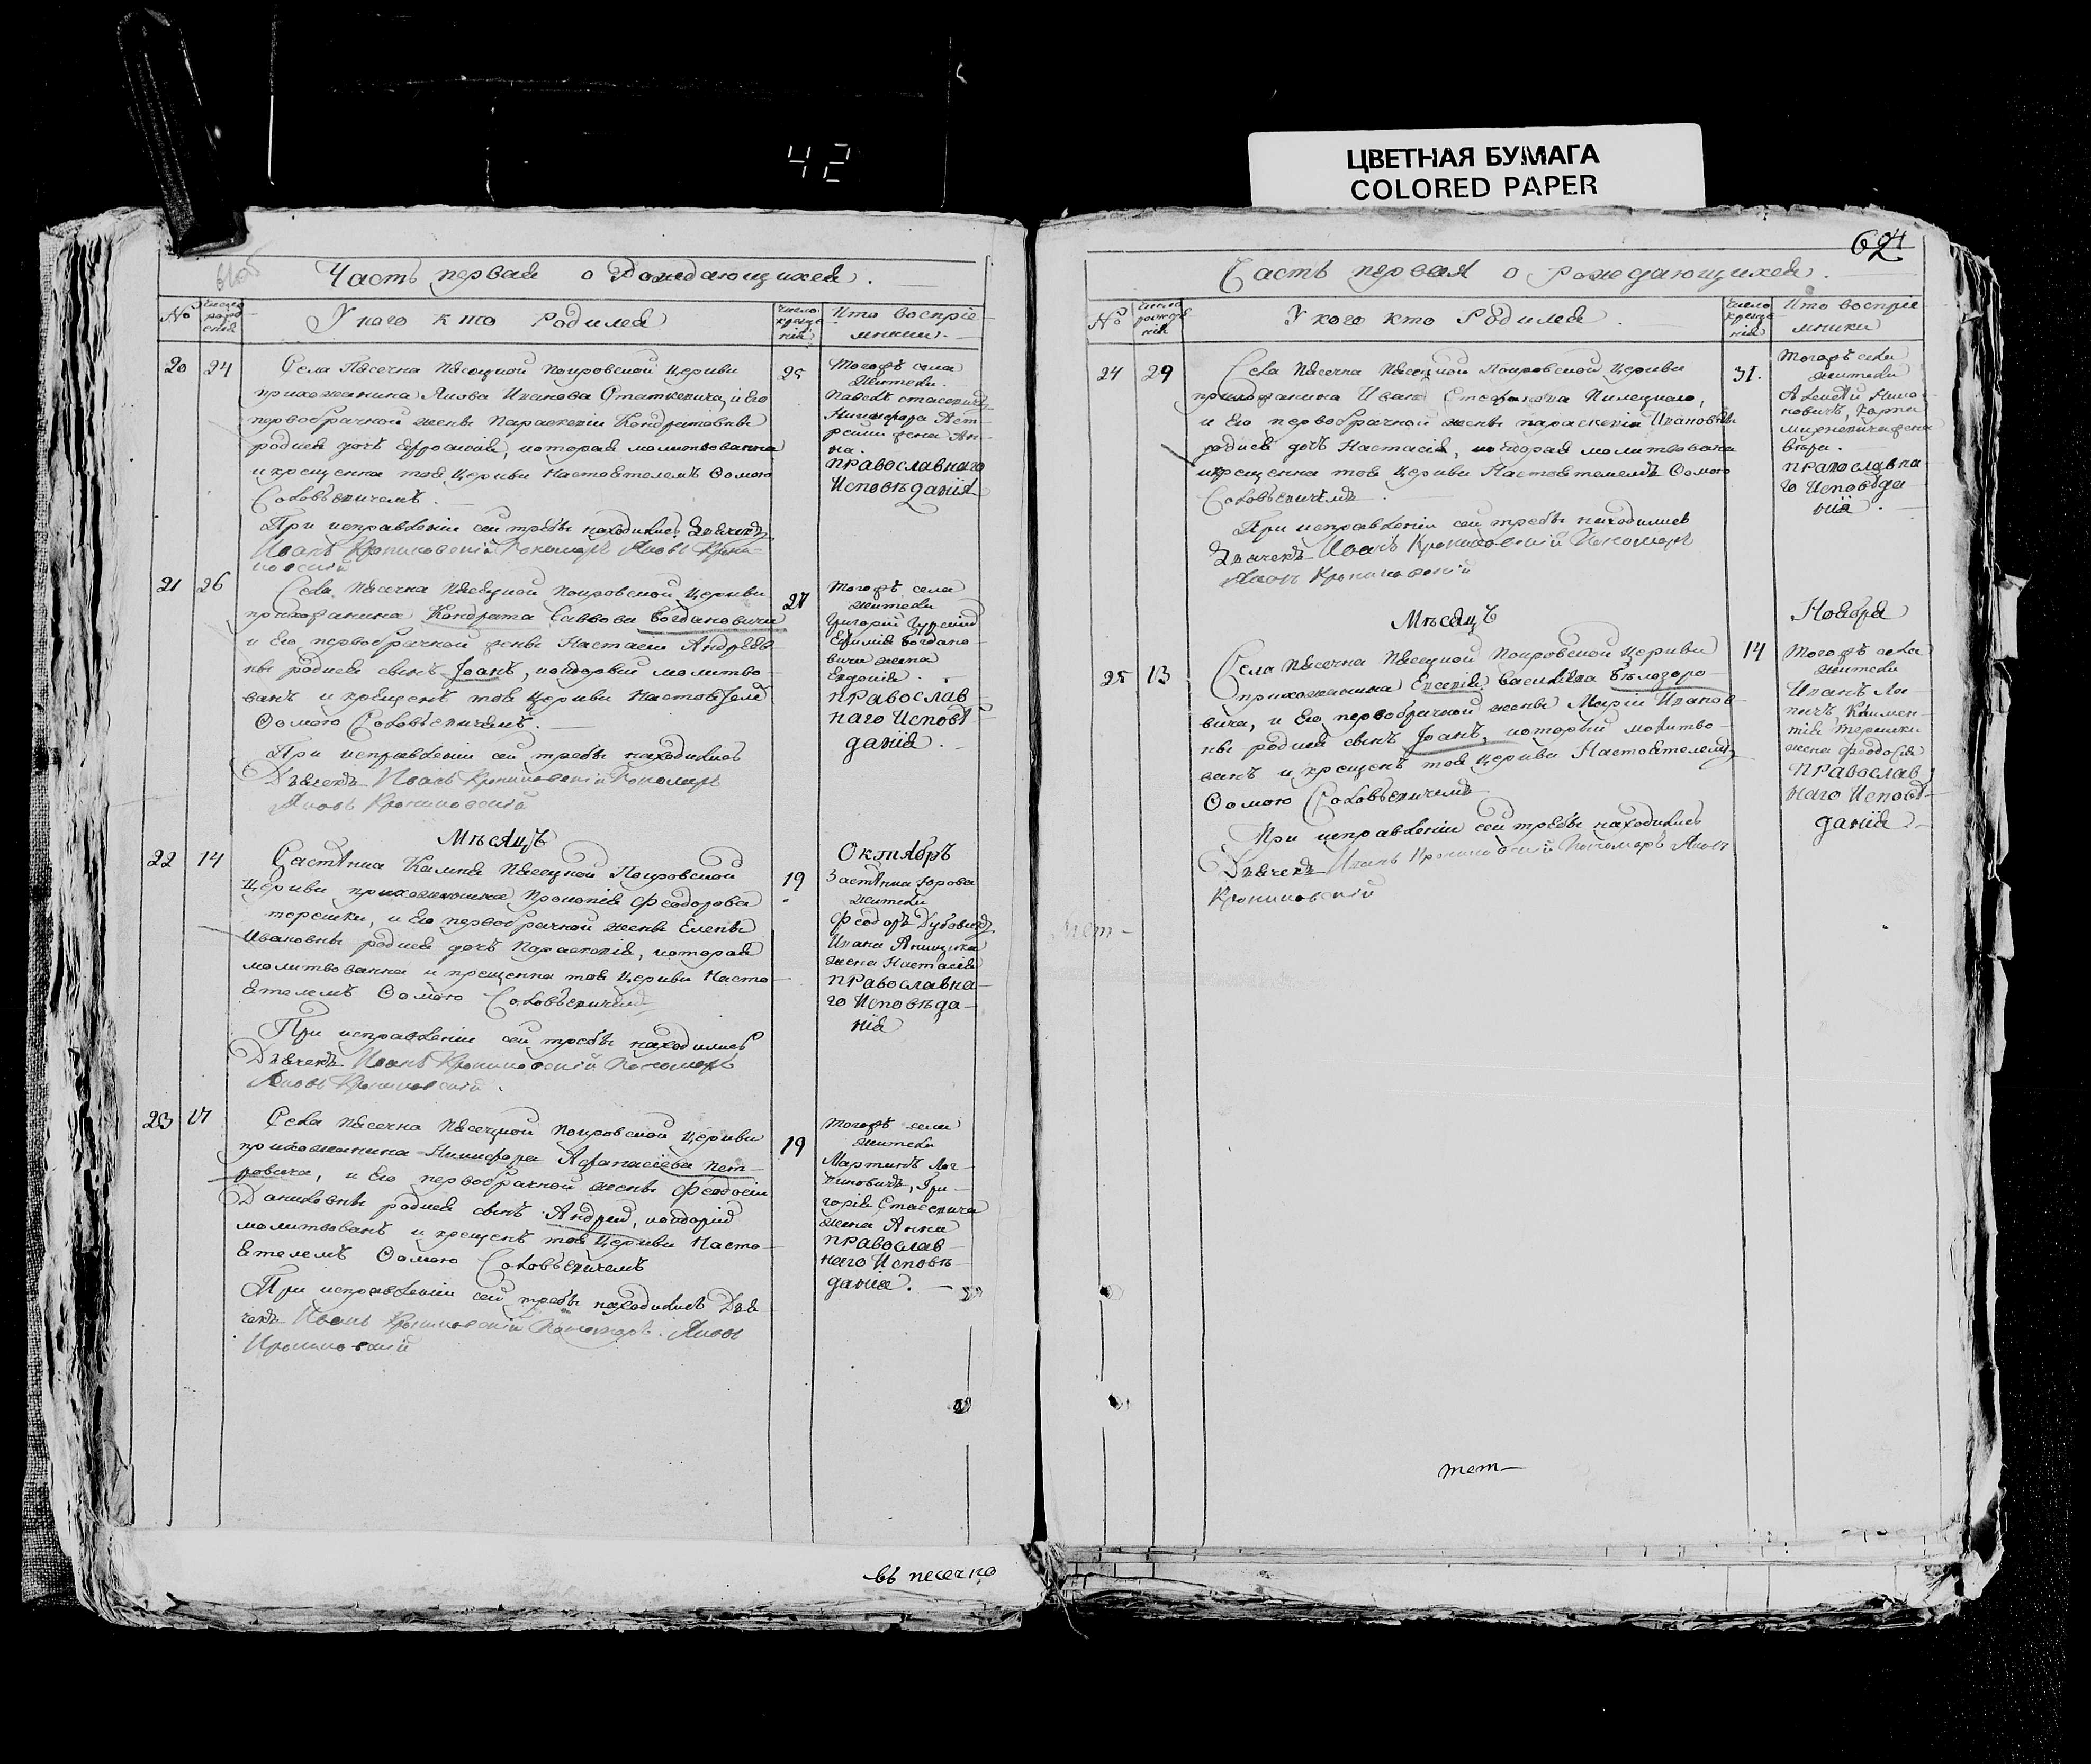 42
ЦВЕТНАЯ БУМАГА
COLORED PAPER
Часть первая о Рождающихся.
№ число рожденія
У кого кто Родился
число крещенія
Кто воспріемники
20 24
Села Пасечна Пасецкой Покровской Церкви
прихожанина Якова Иванова Статкевича, и Его
первобрачной жены Параскевіи Кондратовны
родися дочь Ефросинія, которая молитвованна
и крещенна тоя Церкви Настоятелемъ Ѳомою
Соловьевичемъ.
При исправленіи сей требы находились Дьячекъ
Иванъ Крониковскій Пономарь Яковъ Крони-
ковскій
25
Тогожъ села
жители
Павелъ Стасевичъ
жена Ан-
на.
православнаго
Исповѣданія
21 26
Села Пасечна Пасецкой Покровской Церкви
прихожанина Кондрата Саввова Богдановича
и Его первобрачной жены Настасіи Андреев-
ны родися сынъ Іоанъ, который молитво-
ванъ и крещенъ тоя Церкви Настоятелемъ
Ѳомою Соловьевичемъ.
При исправленіи сей требы находились
Дьячекъ Иванъ Крониковскій Пономарь
Яковъ Крониковскій
27
Тогожъ села
жители
Григорій Гурскій
Богдано-
вича жена
Евдокія.
православ-
наго Исповѣ-
данія.
Мѣсяцъ
Октябрь
22 14
Застѣнка Камня Пасецкой Покровской
Церкви прихожанина Прокопія Феодорова
терешки, и Его первобрачной жены Елены
Ивановны родися дочь Параскевія, которая
молитвованна и крещенна тоя Церкви Насто-
ятелемъ Ѳомою Соловьевичемъ
При исправленіи сей требы находились
Дьячекъ Иванъ Крониковскій Пономарь
Яковъ Крониковскій.
19
Застѣнка
жители
Феодоръ
Ивана
жена Настасія
православна-
го Исповѣда-
нія
23 17
Села Пасечна Пасецкой Покровской Церкви
прихожанина Никифора Афанасіева Пет-
ровича, и Его первобрачной жены Феодосіи
Даниловны родися сынъ Андрей, которій
молитвованъ и крещенъ тоя Церкви Насто-
ятелемъ Ѳомою Соловьевичемъ
При исправленіи сей требы находились Дья-
чекъ Иванъ Крониковскій Пономарь Яковъ
Крониковскій
19
Тогожъ села
жители
Мартинъ Лог-
виновичъ, Гри-
горія Стасевича
жена Анна
православ-
наго Исповѣ-
данія.
въ песечно
624
Часть первая о рождающихся.
№ число рожденія
У кого кто Родился
число крещенія
Кто воспріемники
24 29
Села Пасечна Пасецкой Покровской Церкви
прихожанина Ивана Стефанова Пилецкаго,
и Его первобрачной жены параскевіи Ивановны
родися дочь Настасія, которая молитвованна
и крещенна тоя Церкви Настоятелемъ Ѳомою
Соловьевичемъ.
При исправленіи сей требы находились
Дьячекъ Иванъ Крониковскій Пономарь
Яковъ Крониковскій
31.
Тогожъ села
жители
Алексѣй
новичъ, Карпа
жена
вѣра.
православна-
го Исповѣда-
нія.
Мѣсяцъ
Ноября
25 13
Села Пасечна Пасецкой Покровской Церкви
прихожанина Евсевія Василіева Бѣлозоро-
вича, и Его первобрачной жены Маріи Иванов-
ны родися сынъ Іоанъ, который молитво-
ванъ и крещенъ тоя Церкви Настоятелемъ
Ѳомою Соловьевичемъ
При исправленіи сей требы находились
Дьячекъ Иванъ Крониковскій Пономарь Яковъ
Крониковскій
14
Тогожъ села
жители
Иванъ
Климен-
тія терешки
жена Феодосія
православ-
наго Исповѣ-
данія